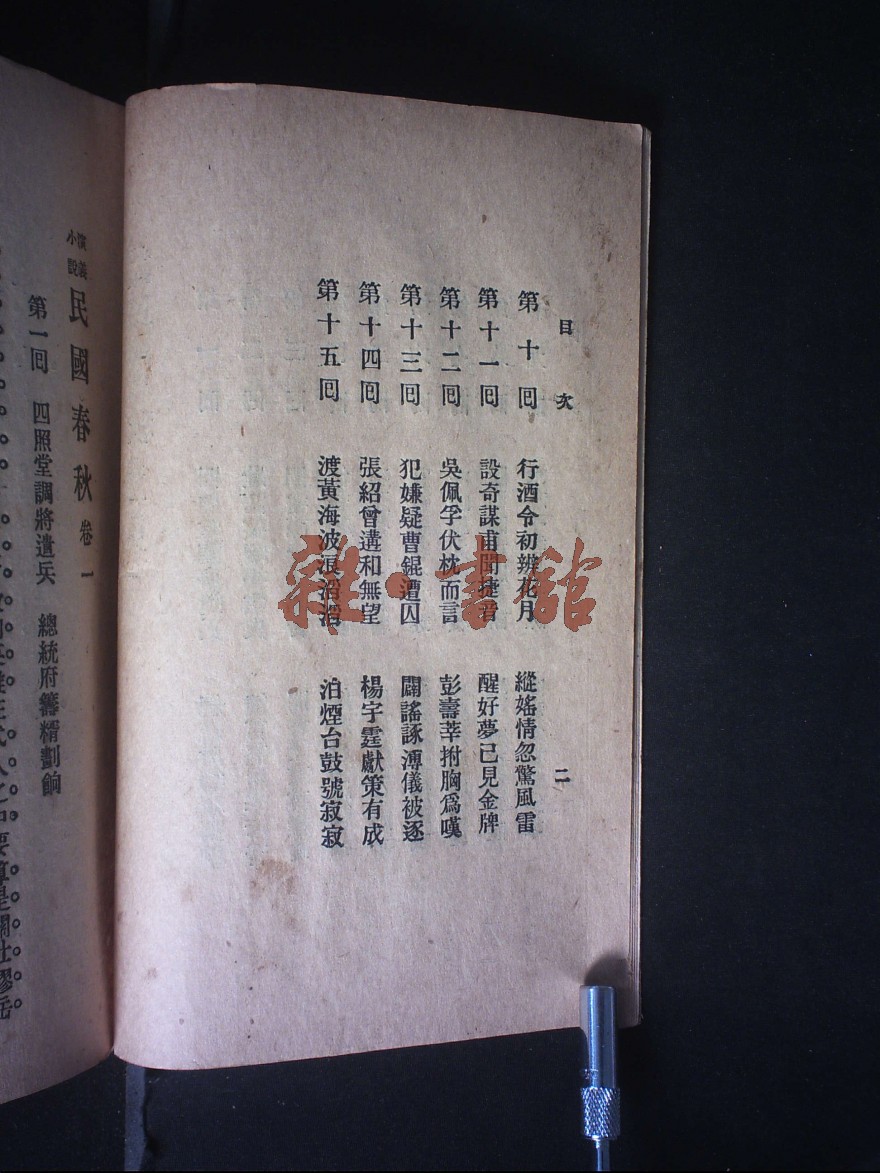 目次 二
第十回 行酒令初辨花月 縱嫆情忽驚風雷
第十一回 設奇謀甫聞捷 醒好夢已見金牌
第十二回 吳佩孚伏枕而言 彭壽莘拊胸爲嘆
第十三回 犯嫌疑曹錕遭囚 闢謠諑溥儀被逐
第十四回 張紹曾講和無望 楊宇霆獻策有成
第十五回 渡黃海波浪滔滔 泊煙台鼓號寂寂
演義小說 民國春秋 卷一
第一回 四照堂調將遣兵 總統府籌糈劃餉
雜·書館